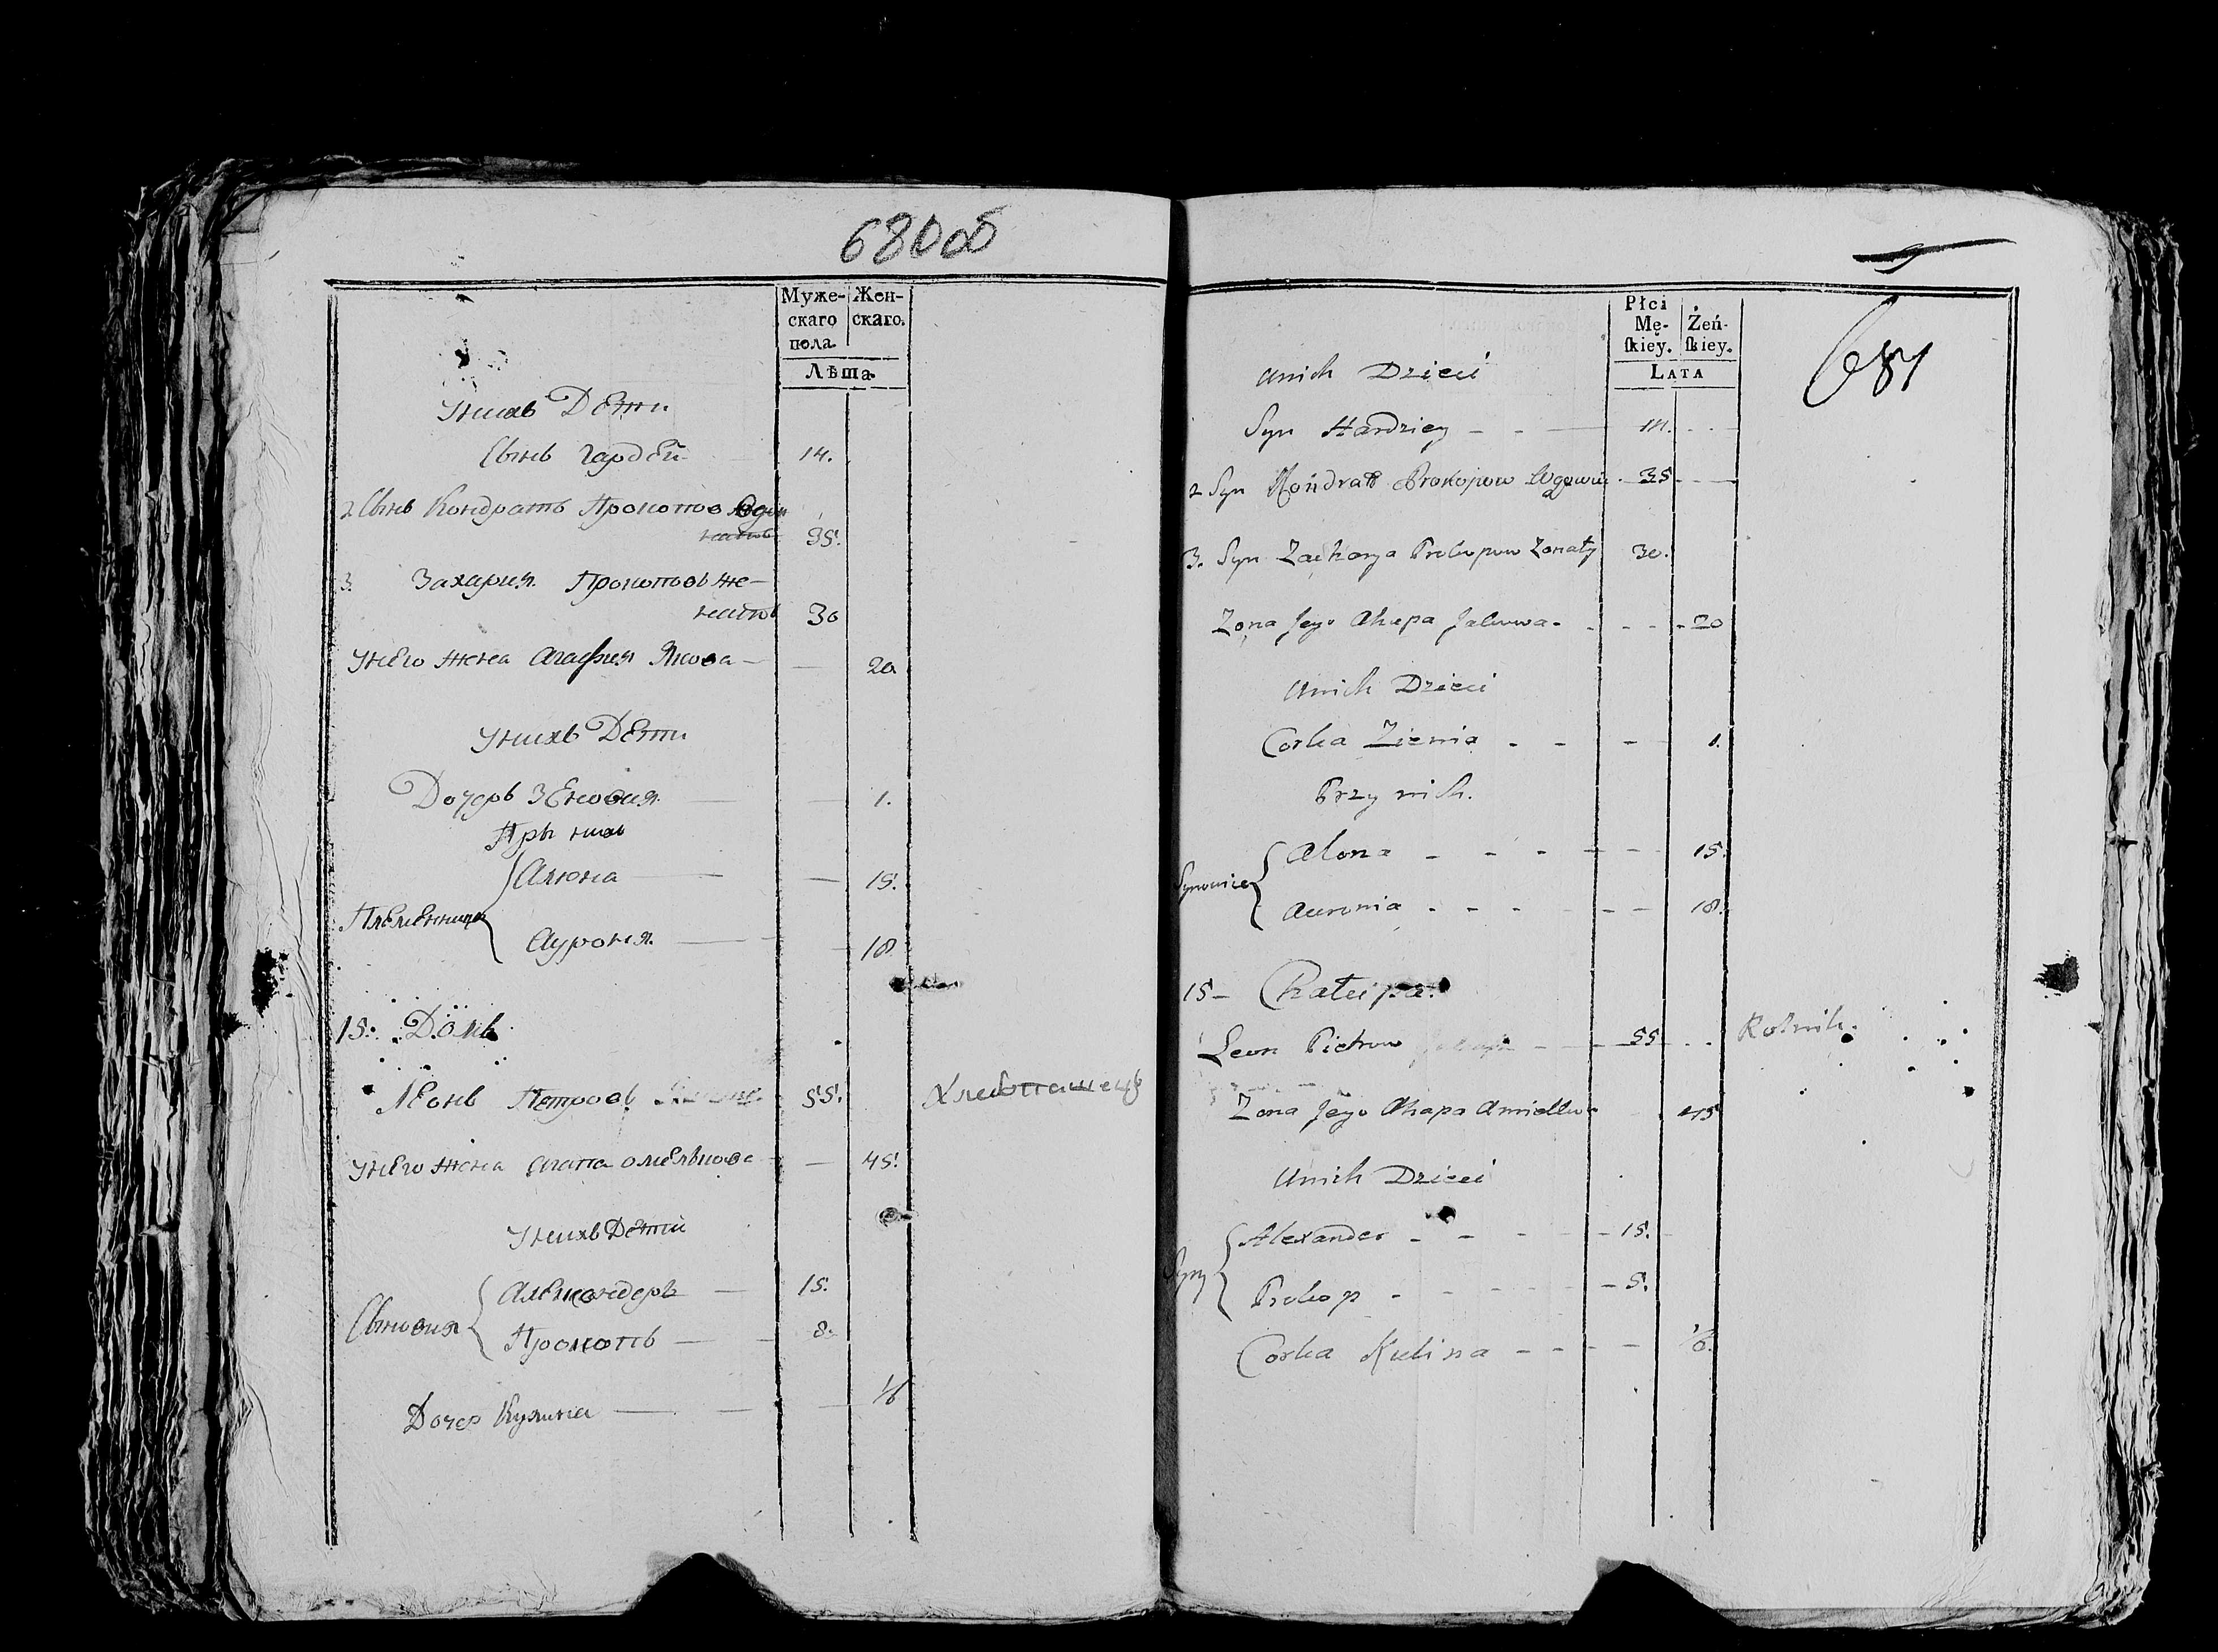 680об
Муже-
скаго
пола.
Жен-
скаго.
Лѣта
Унихъ Дети
Сынъ Гардей 14.
2 Сынъ Кондратъ Прокопов
35.
3. Захария Прокоповъ же-
натъ 30
Унего жена Агафия Якова — — 20
Унихъ Дети
Дочеръ Зеновия — — 1.
При нихъ
Алюна — — 15.
Племенницы
Ауроня — — 18
15. Домъ
Леонъ Петровъ 55. Хлебопашецъ
Унего жена Агапа Омелькова — 45.
Унихъ Дети
Александеръ — 15.
Сыновия
Прокопъ — 8.
Дочер Кулина — — — 16
681
Płci
Mę-
ſkiey.
Żeń-
ſkiey.
LATA
Unich Dzieci
Syn Hardziey - - — 14. - -
2 Syn Kondrat Prokopow - 35 - -
3. Syn Zacharya Prokopow Zonaty 30.
Zona Jego Ahapa Jakowa - - - - 20
Unich Dzieci
Corka Zienia - - - 1.
Przy nich.
Alona - - - - - 15.
Synowice
Auronia - - - - - 18.
15 - Chałupa.
Leon Pietrow - 55 - - Rolnik.
Zona Jego Ahapa Amielkowa 45
Unich Dzieci
Alexander - - - - 15.
Syny
Prokop - - - - - 5.
Corka Kulina - - - - 16.